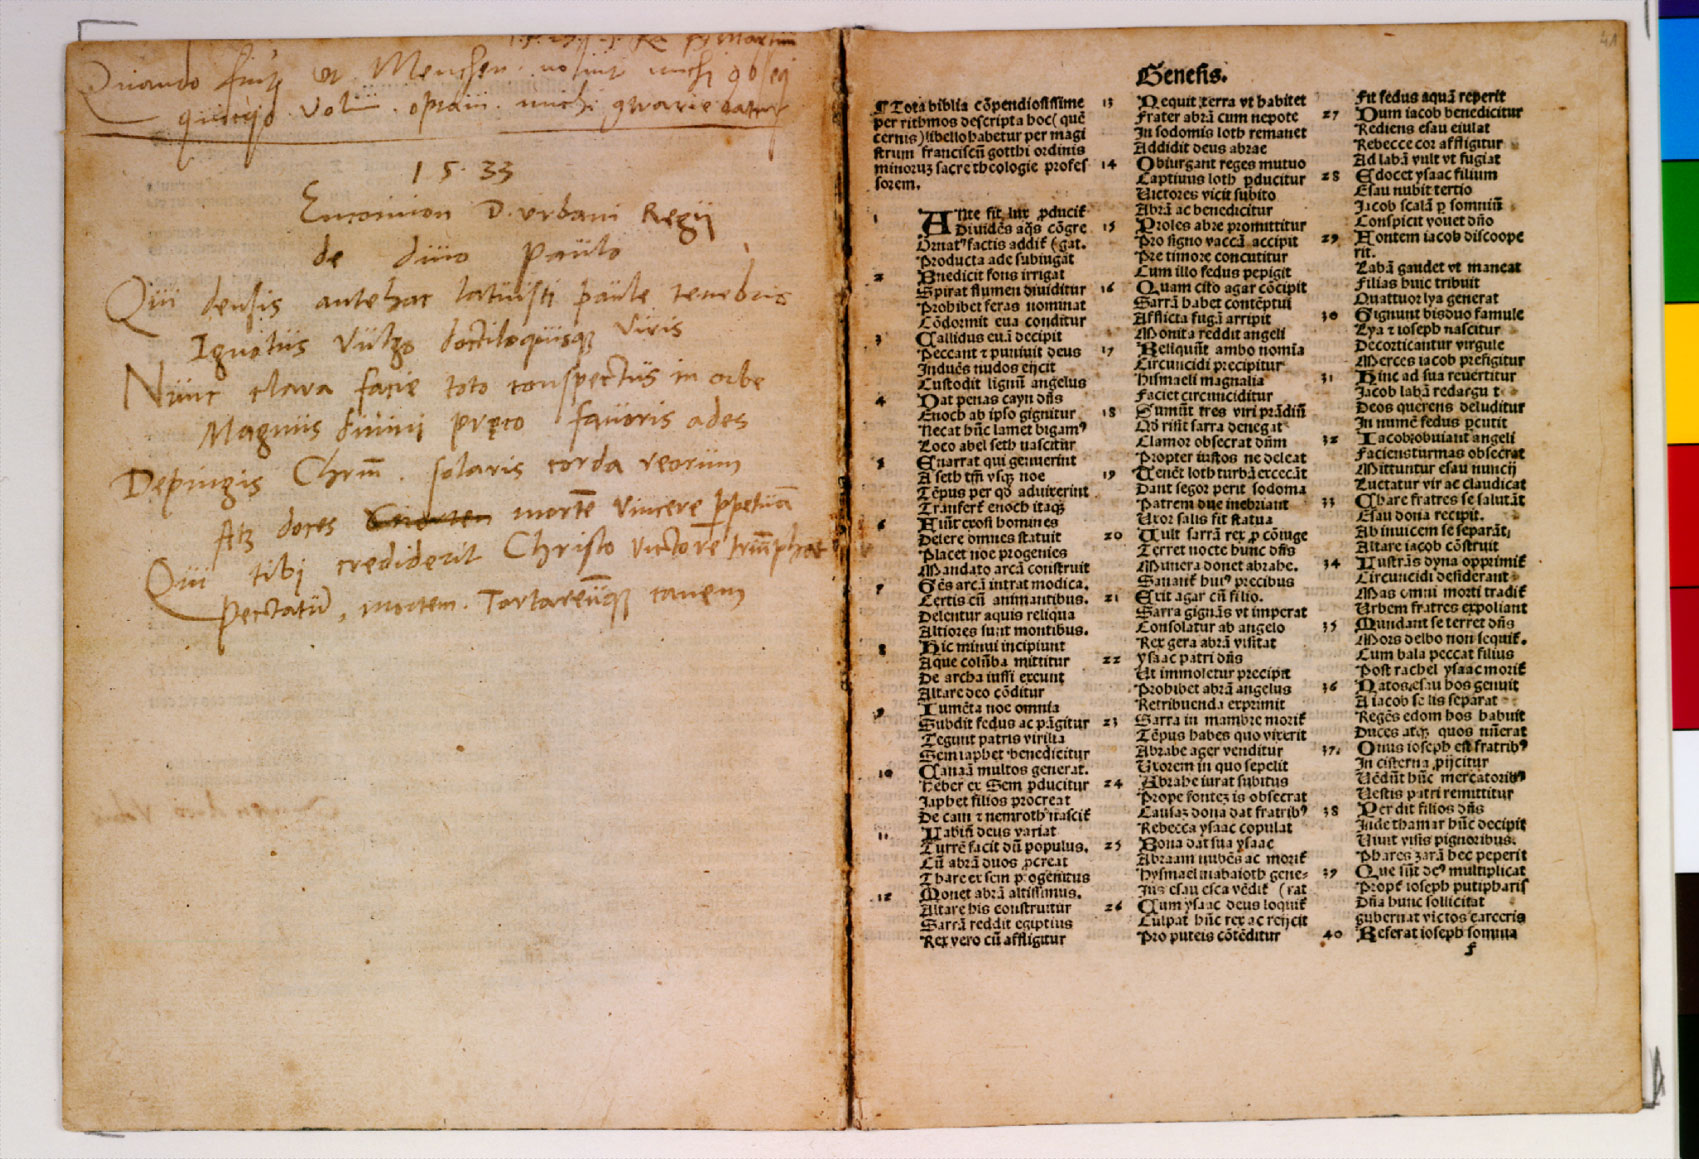 Quando
quicqd volui optaui michi
1533
Encomion D. Vrbani Regij
de diuo Paulo
Qui densis antehac latuisti paule tenebris
Ignotus vulgo doctiloquisque viris
Nunc clara facie toto conspectus in orbe
Magnus diuini pręco fauoris ades
Depingis Chrm̄ solaris corda reorum
Atqꝫ doces mortē vincere ꝑpetuā
Qui tibj crediderit Christo victore triūphat
peccatū, mortem, Tartareūque canem
41
Genesis.
¶ Tota biblia cōpendiosissime
per rithmos descripta hoc (quē
cernis) libello habetur per magi
strum franciscū gotthi ordinis
minoruꝫ sacre theologie profes
sorem.
1 Ante fit lux ꝓducit᷑
Diuidēs aq̄s cōgre
Ornat᷒ factis addit᷑ (gat.
Producta ade subiugat
2 Benedicit fons irrigat
Spirat flumen diuiditur
Prohibet feras nominat
Cōdormit eua conditur
3 Callidus euā decipit
Peccant ⁊ puniuit deus
Induēs nudos eijcit
Custodit lignū angelus
4 Dat penas cayn dn̄s
Enoch ab ipso gignitur
Necat hūc lamet bigam᷒
Loco abel seth nascitur
5 Enarrat qui genuerint
A seth tm̄ vsqꝫ noe
Tēpus per qd̄ aduixerint
Trāsfert᷑ enoch itaqꝫ
6 Fiūt exosi homines
Delere omnes statuit
Placet noe progenies
Mandato arcā construit
7 Gēs arcā intrat modica.
Certis cū animantibus.
Delentur aquis reliqua
Altiores sunt montibus.
8 Hic minui incipiunt
Aque colūba mittitur
De archa iussi exeunt
Altare deo cōditur
9 Iumēta noe omnia
Subdit fedus ac pāgitur
Tegunt patris virilia
Sem iaphet benedicitur
10 Canaā multos generat.
Heber ex Sem ꝓducitur
Iaphet filios procreat
De cam ⁊ nemroth nascit᷑
11 Labiū deus variat
Turrē facit dū populus.
Cū abrā duos ꝓcreat
Thare ex sem progenitus
12 Monet abrā altissimus.
Altare his construitur
Sarrā reddit egiptius
Rex vero cū affligitur
13 Nequit terra vt habitet
Frater abrā cum nepote
In sodomis loth remanet
Addidit deus abrae
14 Obiurgant reges mutuo
Captiuus loth ꝓducitur
Victores vicit subito
Abrā ac benedicitur
15 Proles abre promittitur
Pro signo vaccā accipit
Pre timore concutitur
Cum illo fedus pepigit
16 Quam cito agar cōcipit
Sarrā habet contēptui
Afflicta fugā arripit
Monita reddit angeli
17 Reliquūt ambo nomīa
Circuncidi precipitur
Hismaeli magnalia
Faciet circunciditur
18 Sumūt tres viri prādiū
Qd̄ risit sarra denegat
Clamor obsecrat dn̄m
Propter iustos ne deleat
19 Tenēt loth turbā excecāt
Dant segor perit sodoma
Patrem due inebriant
Vxor salis fit statua
20 Tult sarrā rex ꝓ cōiuge
Terret nocte hunc dn̄s
Munera donet abrahe.
Sanant᷑ hui᷒ precibus
21 Exit agar cū filio.
Sarra gignās vt imperat
Consolatur ab angelo
Rex gera abrā visitat
22 ysaac patri dn̄s
Vt immoletur precipit
Prohibet abrā angelus
Retribuenda exprimit
23 Sarra in mambre morit᷑
Tēpus habes quo vixerit
Abrahe ager venditur
Vxorem in quo sepelit
24 Abrahe iurat subitus
Prope fontez is obsecrat
Causaꝫ dona dat fratrib᷒
Rebecca ysaac copulat
25 Bona dat sua ysaac
Abraam nubēs ac morit᷑
Hysmael nabaioth gene-
Ius esau esca vēdit᷑ (rat
26 Cum ysaac deus loquit᷑
Culpat hūc rex ac reijcit
Pro puteis cōtēditur
Fit fedus aquā reperit
27 Dum iacob benedicitur
Rediens esau eiulat
Rebecce cor affligitur
Ad labā vult vt fugiat
28 Edocet ysaac filium
Esau nubit tertio
Iacob scalā ꝑ somniū
Conspicit vouet dn̄o
29 Fontem iacob discoope
rit.
Labā gaudet vt maneat
Filias huic tribuit
Quattuor lya generat
30 Gignunt bisduo famule
Lya ⁊ ioseph nascitur
Decorticantur virgule
Merces iacob prefigitur
31 Hinc ad sua reuertitur
Iacob labā redargut
Deos querens deluditur
In numē fedus ꝑcutit
32 Iacob obuiant angeli
Faciens turmas obsecrat
Mittuntur esau nuncij
Luctatur vir ac claudicat
33 Chare fratres se salutāt
Esau dona recipit.
Ab inuicem se separāt,
Altare iacob cōstruit
34 Lustrās dyna opprimit᷑
Circuncidi desiderant
Mas omni morti tradit᷑
Vrbem fratres expoliant
35 Mundant se terret dn̄s
Mors delbo non sequit᷑.
Cum bala peccat filius
Post rachel ysaac morit᷑
36 Natos esau hos genuit
A iacob se lis separat
Regēs edom hos habuit
Duces atqꝫ quos nūerat
37. Onus ioseph est fratrib᷒
In cisterna ꝓijcitur
Vēdūt hūc mercatorib᷒
Vestis patri remittitur
38 Perdit filios dn̄s
Inde thamar hūc decipit
Viuit visis pignoribus.
Phares zarā hec peperit
39 Que sūt de᷒ multiplicat
Propt᷑ ioseph putipharis
Dn̄a hunc sollicitat
gubernat victos carceris
40 Referat ioseph somnia
f